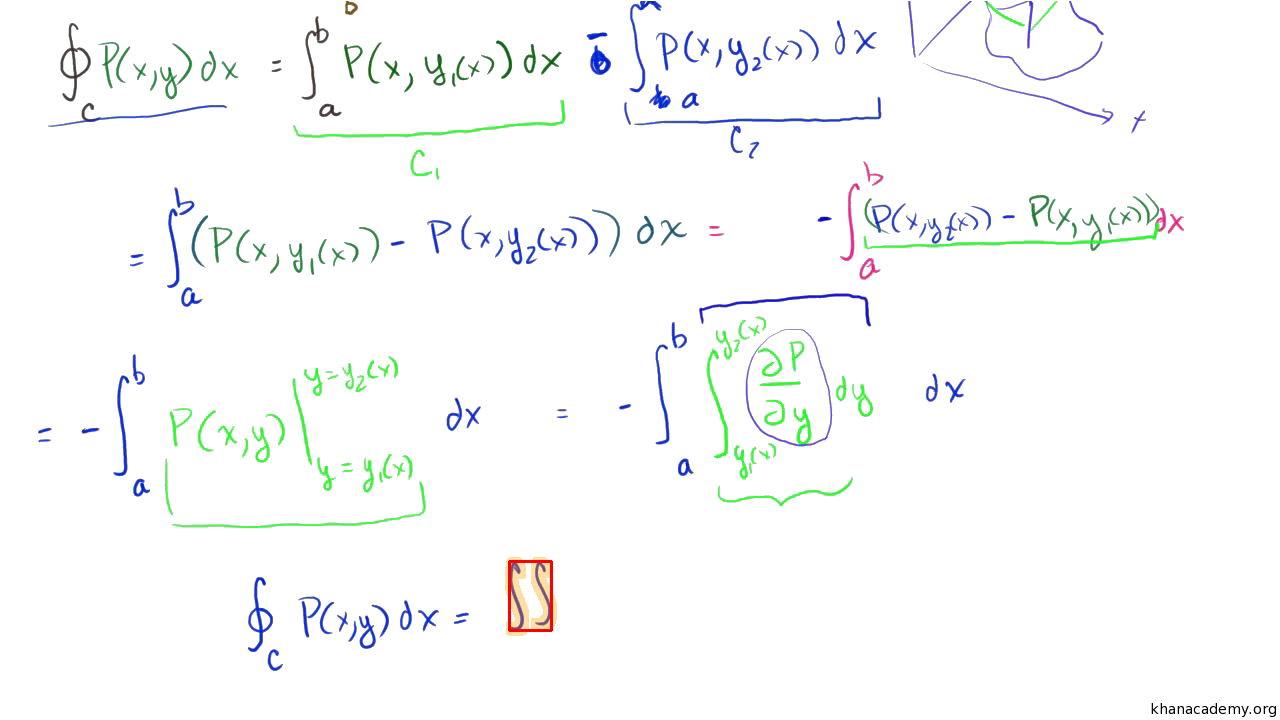 ∮_C P(x,y) dx = ∫_a^b P(x, y₁(x)) dx - ∫_a P(x, y₂(x)) dx
C₁ C₂ x
= ∫_a^b (P(x, y₁(x)) - P(x, y₂(x))) dx = -∫_a^b (P(x, y₂(x)) - P(x, y₁(x))) dx
= -∫_a^b P(x,y) |_{y = y₁(x)}^{y = y₂(x)} dx = -∫_a^b ∫_{y₁(x)}^{y₂(x)} ∂P/∂y dy dx
∮_C P(x,y) dx = ∫∫
khanacademy.org